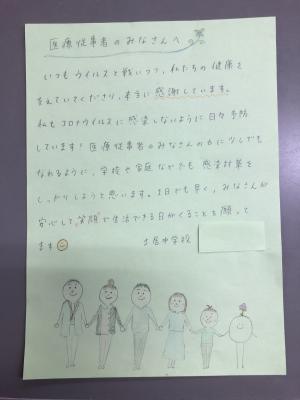 医療従事者のみなさんへ
いつもウイルスと戦いつつ、私たちの健康を
支えていてくださり、本当に感謝しています。
私もコロナウイルスに感染しないように日々予防
しています！医療従事者のみなさんの力に少しでも
なれるように、学校や家庭などでも感染対策を
しっかりしようと思います。1日でも早く、みなさんが
安心して"笑顔"で生活できる日がくることを願って
ます
土居中学校